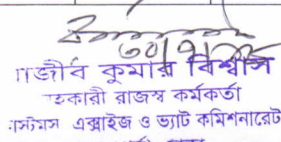 ৩০/৭/
াজীব কুমার বিশ্বাস
হকারী রাজস্ব কর্মকর্তা
াস্টমস এক্সাইজ ও ভ্যাট কমিশনারেট